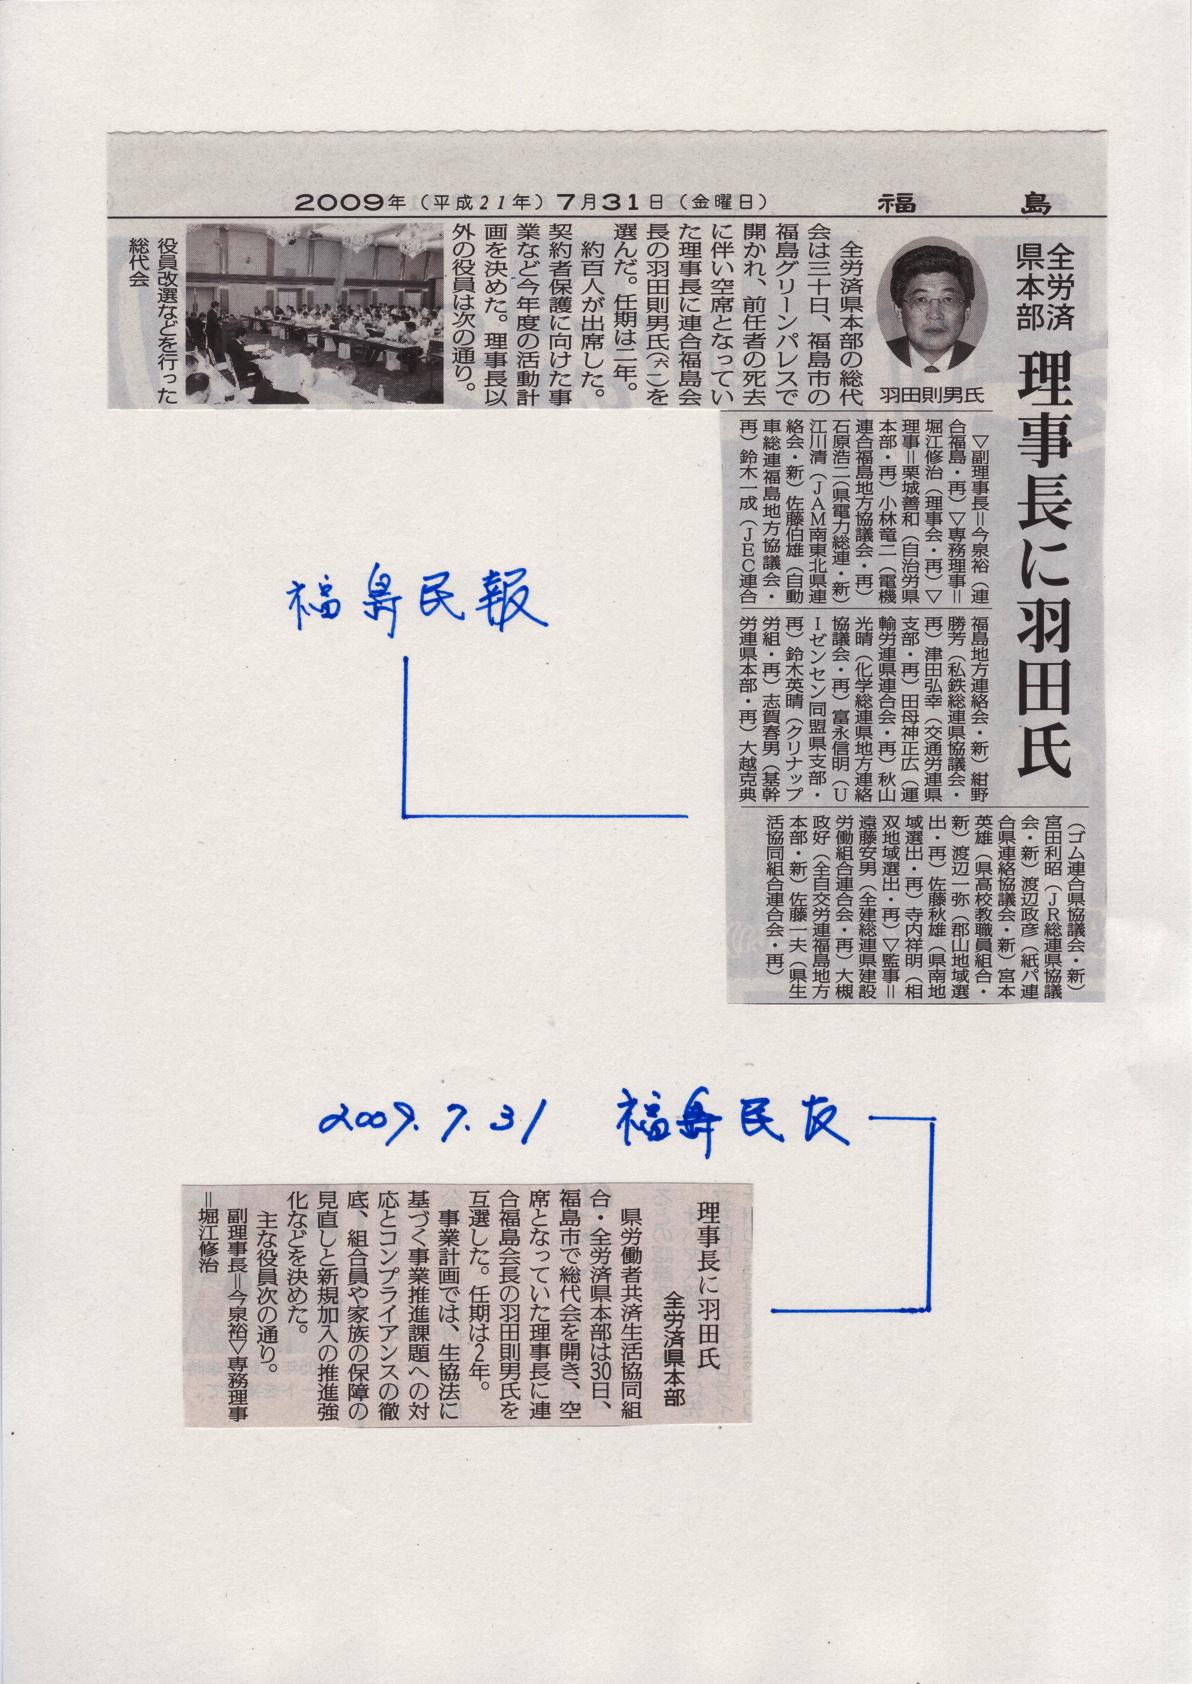 2009年（平成21年）7月31日（金曜日）
福　島
全労済
県本部
理事長に羽田氏
羽田則男氏
全労済県本部の総代
会は三十日、福島市の
福島グリーンパレスで
開かれ、前任者の死去
に伴い空席となってい
た理事長に連合福島会
長の羽田則男氏（六二）を
選んだ。任期は二年。
約百人が出席した。
契約者保護に向けた事
業など今年度の活動計
画を決めた。理事長以
外の役員は次の通り。
役員改選などを行った
総代会
▽副理事長＝今泉裕（連
合福島・再）▽専務理事＝
堀江修治（理事会・再）▽
理事＝栗城善和（自治労県
本部・再）小林竜二（電機
連合福島地方協議会・再）
石原浩二（県電力総連・新）
江川清（ＪＡＭ南東北県連
絡会・新）佐藤伯雄（自動
車総連福島地方協議会・
再）鈴木一成（ＪＥＣ連合
福島地方連絡会・新）紺野
勝芳（私鉄総連県協議会・
再）津田弘幸（交通労連県
支部・再）田母神正広（運
輸労連県連合会・再）秋山
光晴（化学総連県地方連絡
協議会・再）富永信明（Ｕ
Ｉゼンセン同盟県支部・
再）鈴木英晴（クリナップ
労組・再）志賀春男（基幹
労連県本部・再）大越克典
（ゴム連合県協議会・新）
宮田利昭（ＪＲ総連県協議
会・新）渡辺政彦（紙パ連
合県連絡協議会・新）宮本
英雄（県高校教職員組合・
新）渡辺一弥（郡山地域選
出・再）佐藤秋雄（県南地
域選出・再）寺内祥明（相
双地域選出・再）▽監事＝
遠藤安男（全建総連県建設
労働組合連合会・再）大槻
政好（全自交労連福島地方
本部・新）佐藤一夫（県生
活協同組合連合会・再）
福島民報
2009.7.31　福島民友
理事長に羽田氏
全労済県本部
県労働者共済生活協同組
合・全労済県本部は30日、
福島市で総代会を開き、空
席となっていた理事長に連
合福島会長の羽田則男氏を
互選した。任期は2年。
事業計画では、生協法に
基づく事業推進課題への対
応とコンプライアンスの徹
底、組合員や家族の保障の
見直しと新規加入の推進強
化などを決めた。
主な役員次の通り。
副理事長＝今泉裕▽専務理事
＝堀江修治